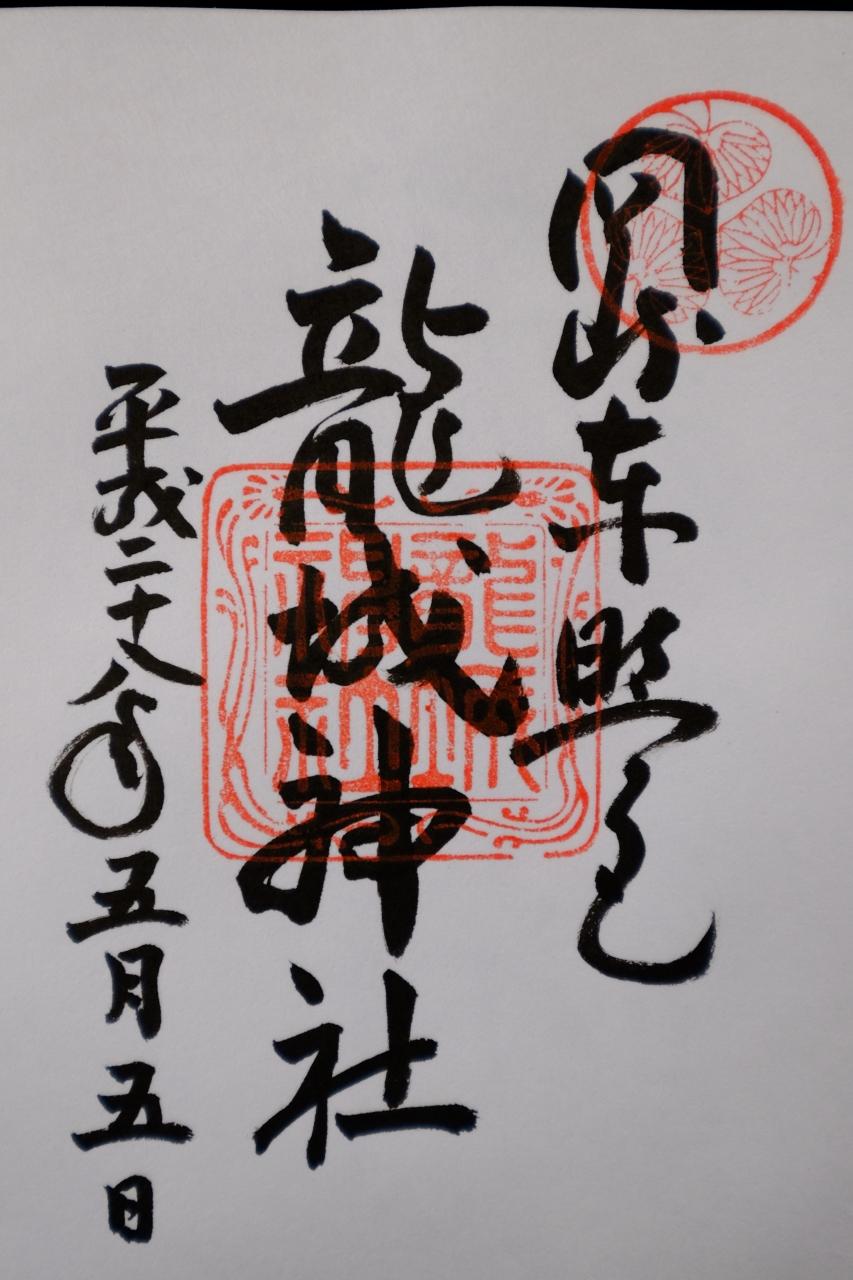 岡崎東照宮
龍城神社
平成二十八年五月五日
龍城
神社